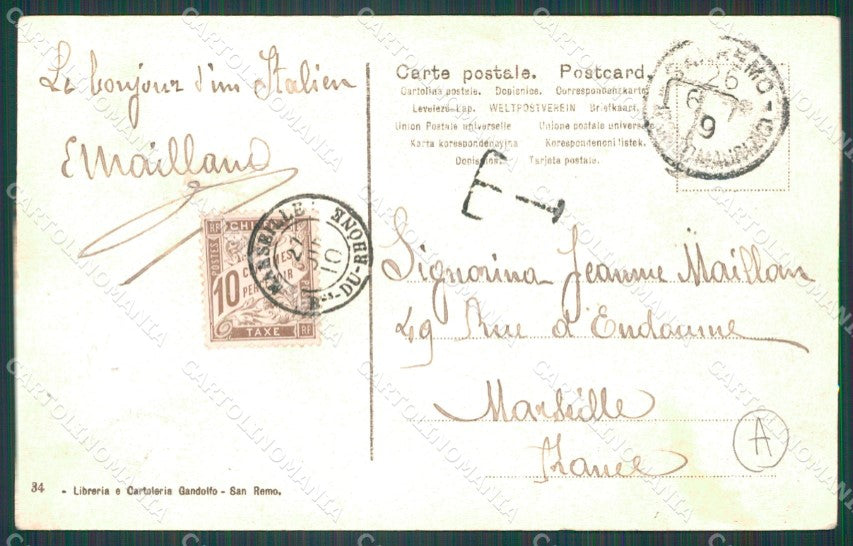 Le bonjour d'un Italien
E Mailland
Carte postale. Postcard.
Cartolina postale. Dopisnice. Correspondenzkarte
Levelező-Lap. WELTPOSTVEREIN Briefkaart.
Union Postale universelle Unione postale univers
Karta korespondencyjna Korespondenční lístek.
Dopisnica. Tarjeta postale.
REMO
26
9
T
MARSEILLE
27
10
Bes-DU-RHONE
POSTES
RF
10
CENTIMES
TAXE
RF
Signorina Jeanne Maillan
49 Rue d'Endoume
Marseille
France
A
34 - Libreria e Cartoleria Gandolfo - San Remo.
CARTOLINOMANIA